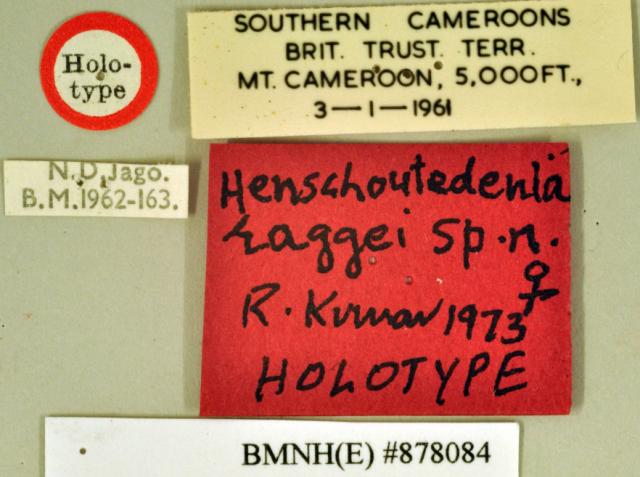 Holo-
type
SOUTHERN CAMEROONS
BRIT. TRUST. TERR.
MT. CAMEROON, 5,000FT.,
3—1—1961
N.D. Jago.
B.M.1962-163.
Henschoutedenia
raggei sp.n.
♀
R. Kumar 1973
HOLOTYPE
BMNH(E) #878084